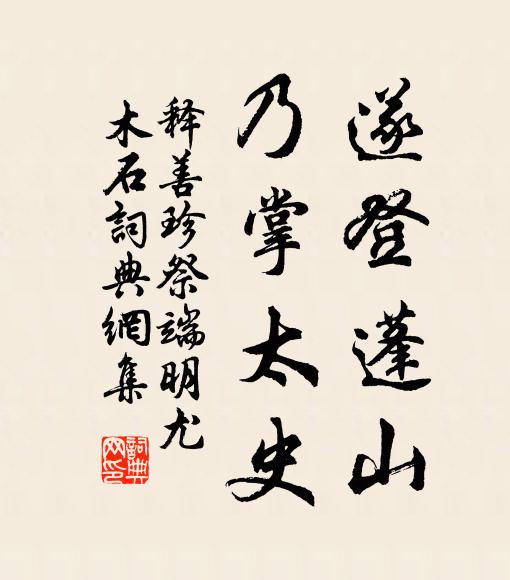 遂登蓬山
乃掌太史
释善珍祭端明尤
木石詞典網集
詞典網印